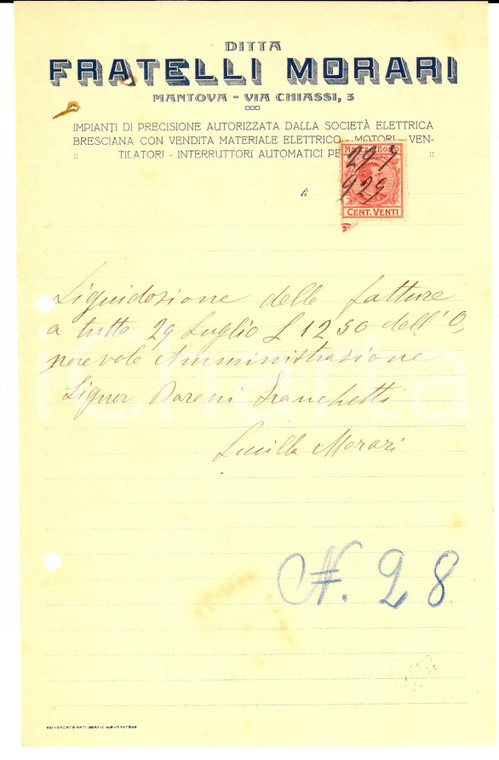 DITTA
FRATELLI MORARI
MANTOVA - VIA CHIASSI, 3
IMPIANTI DI PRECISIONE AUTORIZZATA DALLA SOCIETÀ ELETTRICA
BRESCIANA CON VENDITA MATERIALE ELETTRICO - MOTORI - VEN-
:: TILATORI - INTERRUTTORI AUTOMATICI PE ::
29 7
929
CENT. VENTI
Liquidosione delle fatture
a tutto 29 Luglio £ 12 50 dell' O,
norevole Amministrasione
Signor Baroni Franchetti
Morari
N. 28